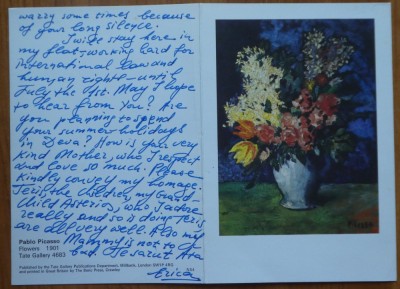 worry some times because
of your long silence.
I will stay here in
my flat-working hard for
international Law and
human rights - until
July the 1st. May I hope
to hear from You? Are
you planning to spend
your summer holidays
in Deva? How is your very
kind Mother, who I respect
and Love so much. Please
kindly convey my homage.
Teris, the children, my Grand-
child Asterios, who I adore
really and so is doing Teris
are all very well. Also my
Mammy is not to
bad.
Erica
Pablo Picasso
Flowers 1901
Tate Gallery 4683
Published by the Tate Gallery Publications Department, Millbank, London SW1P 4RG
and printed in Great Britain by The Bath Press,
Picasso